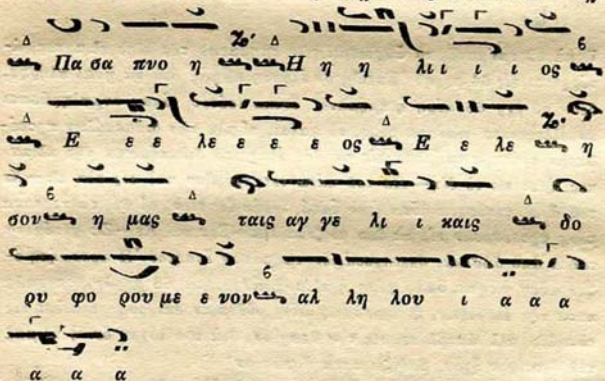 Πα σα πνο η Η η η λι ι ι ι ος
Ε ε ε λε ε ε ε ος Ε ε λε η
σον η μας ταις αγ γε λι ι καις δο
ρυ φο ρου με ε νον αλ λη λου ι α α α
α α α